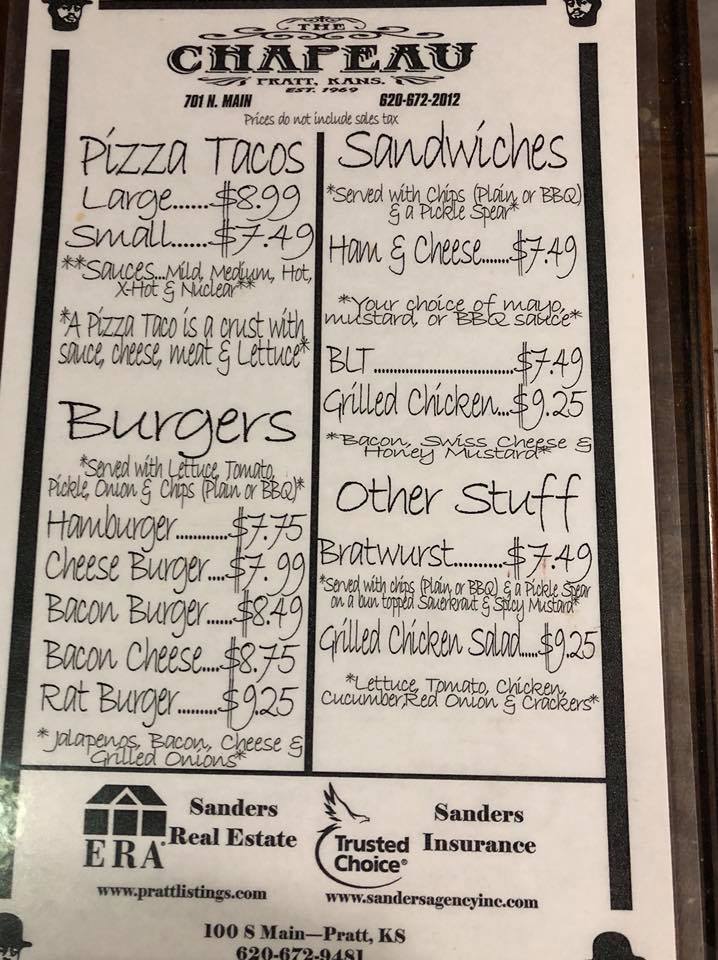 THE
CHAPEAU
PRATT, KANS.
EST. 1969
701 N. MAIN 620-672-2012
Prices do not include sales tax
Pizza Tacos
Large......$8.99
Small......$7.49
**Sauces...Mild, Medium, Hot,
X-Hot & Nuclear**
*A Pizza Taco is a crust with
sauce, cheese, meat & Lettuce*
Burgers
*Served with Lettuce, Tomato,
Pickle, Onion & Chips (Plain or BBQ)*
Hamburger...........$7.75
Cheese Burger....$7.99
Bacon Burger......$8.49
Bacon Cheese....$8.75
Rat Burger.........$9.25
*Jalapenos, Bacon, Cheese &
Grilled Onions*
Sandwiches
*Served with Chips (Plain or BBQ)
& a Pickle Spear*
Ham & Cheese.......$7.49
*Your choice of mayo,
mustard, or BBQ sauce*
BLT..................................$7.49
Grilled Chicken...$9.25
*Bacon, Swiss Cheese &
Honey Mustard*
Other Stuff
Bratwurst..........$7.49
*Served with chips (Plain or BBQ) & a Pickle Spear
on a bun topped Sauerkraut & Spicy Mustard*
Grilled Chicken Salad.....$9.25
*Lettuce, Tomato, Chicken,
Cucumber,Red Onion & Crackers*
ERA
Sanders
Real Estate
www.prattlistings.com
Trusted
Choice®
Sanders
Insurance
www.sandersagencyinc.com
100 S Main—Pratt, KS
620-672-9481